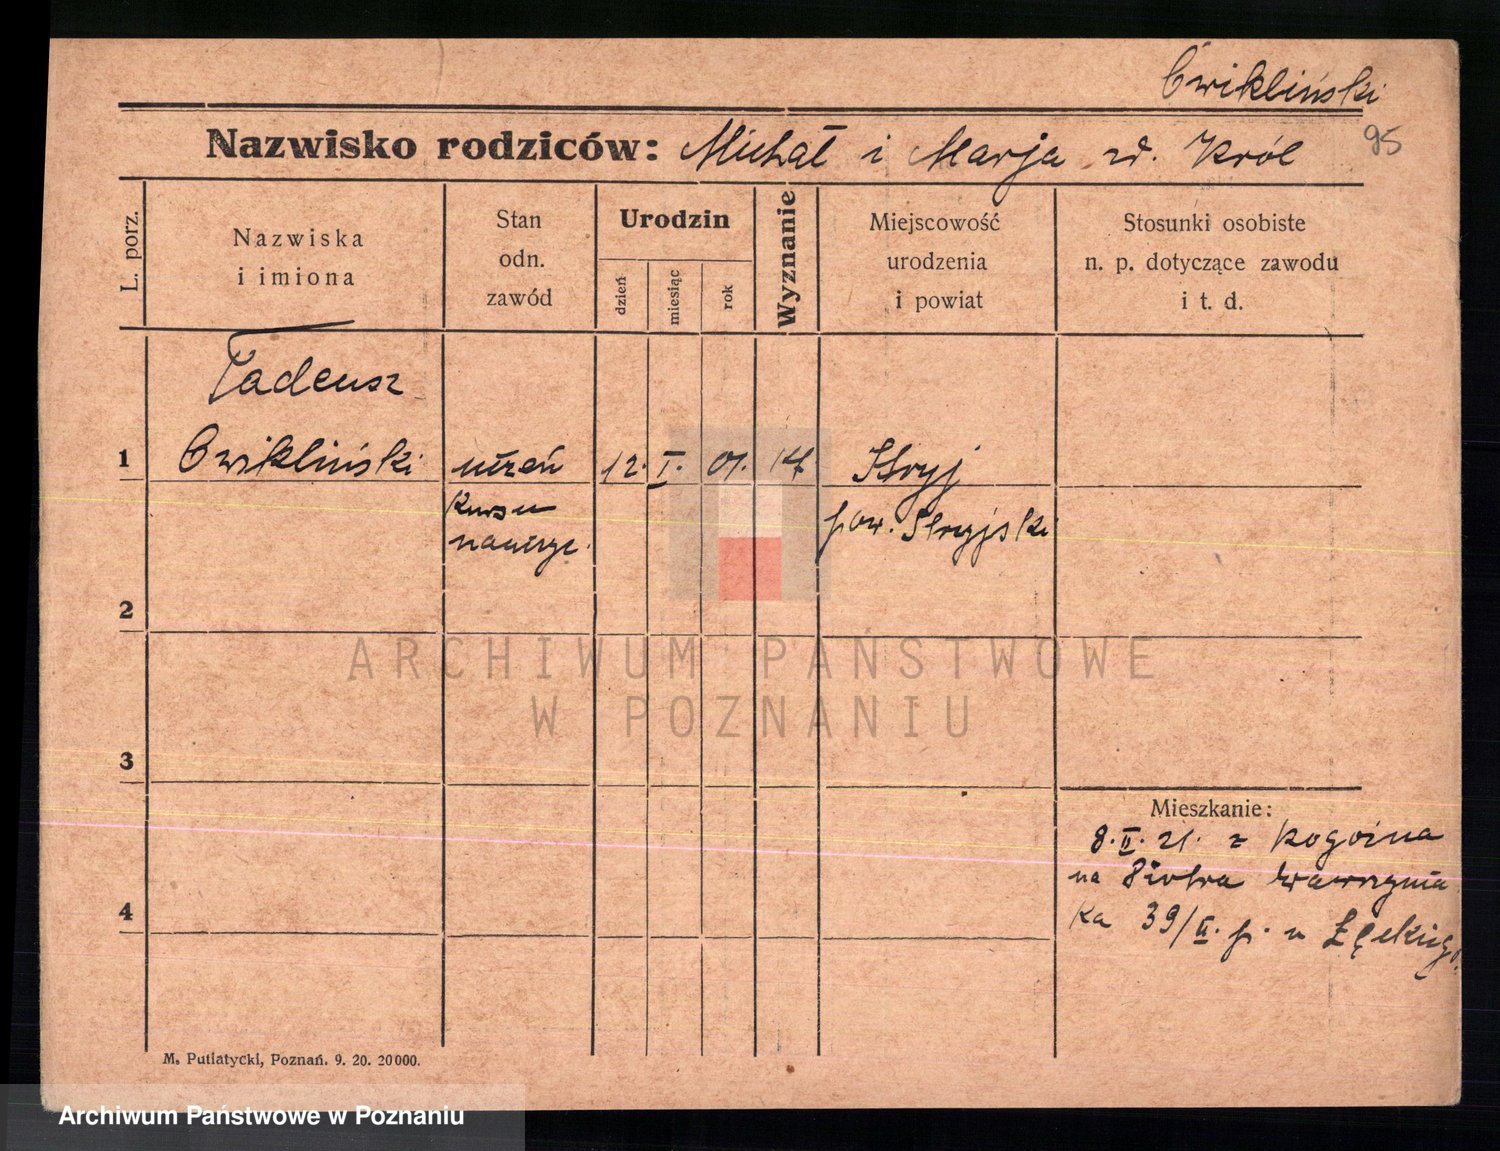 Ćwikliński
Nazwisko rodziców: Michał i Marja zd. Król
95
L. porz.
Nazwiska i imiona
Stan odn. zawód
Urodzin
dzień
miesiąc
rok
Wyznanie
Miejscowość urodzenia i powiat
Stosunki osobiste n. p. dotyczące zawodu i t. d.
Tadeusz
1 Ćwikliński uczeń 12. I. 01. Stryj
kursu
pow. Stryjski
2
3
Mieszkanie:
8.II.21. z
na Piotra Wawrzynia
4
ka 39/II. p. u
M. Putiatycki, Poznań. 9. 20. 20000.
ARCHIWUM PAŃSTWOWE
W POZNANIU
Archiwum Państwowe w Poznaniu